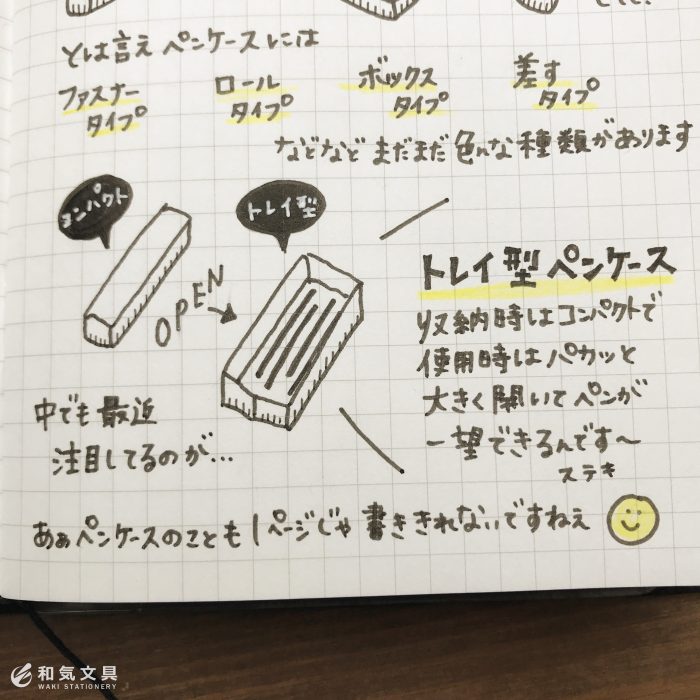 とは言え ペンケースには
ファスナー
タイプ
ロール
タイプ
ボックス
タイプ
差す
タイプ
などなど まだまだ 色んな 種類があります
コンパクト
トレイ型
OPEN
トレイ型 ペンケース
収納時はコンパクトで
使用時はパカッと
大きく開いてペンが
一望できるんです〜
ステキ
中でも最近
注目してるのが...
あぁペンケースのことも1ページじゃ書ききれないですねえ
和気文具
WAKI STATIONERY